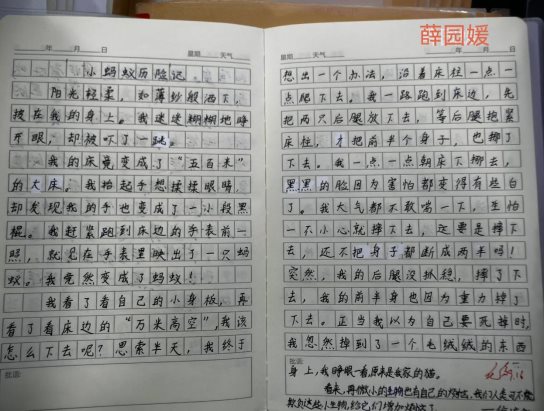 薛园媛
年 月 日
星期 天气
小蚂蚁历险记
阳光轻柔，如薄纱般洒下，
披在我的身上。我迷迷糊糊地睁
开眼，却被吓了一跳。
我的床竟变成了“五百米”
的大床。我抬起手想揉揉眼睛，
却发现我的手也变成了一小段黑
棍。我赶紧跑到床边的手表前一
照，就见在手表里映出了一只蚂
蚁。我竟然变成了蚂蚁！
我看了看自己的小身板，再
看了看床边的“万米高空”，我该
怎么下去呢？思索半天，我终于
批语:
星期 天气
年 月 日
想出一个办法，沿着床柱一点一
点爬下去。我一路跑到床边，先
把两只后腿放下去，等后腿抱紧
床柱，才把前半个身子，也挪了
下去。我一点一点朝床下挪去，
黑黑的脸因为害怕都变得有些白
了。我大气都不敢喘一下，生怕
一不小心就摔下去，这要是摔下
去，还不把身子都断成两半吗！
突然，我的后腿没抓稳，摔了下
去，我的前半身也因为重力摔了
下去。正当我以为自己要死掉时，
我忽然掉到了一个毛绒绒的东西
批语:
身上，我睁眼一看，原来是我家的猫。
看来，再微小的生物也有自己的烦恼，我们人类可不能
欺负这些小生物，给它们增加烦恼了。